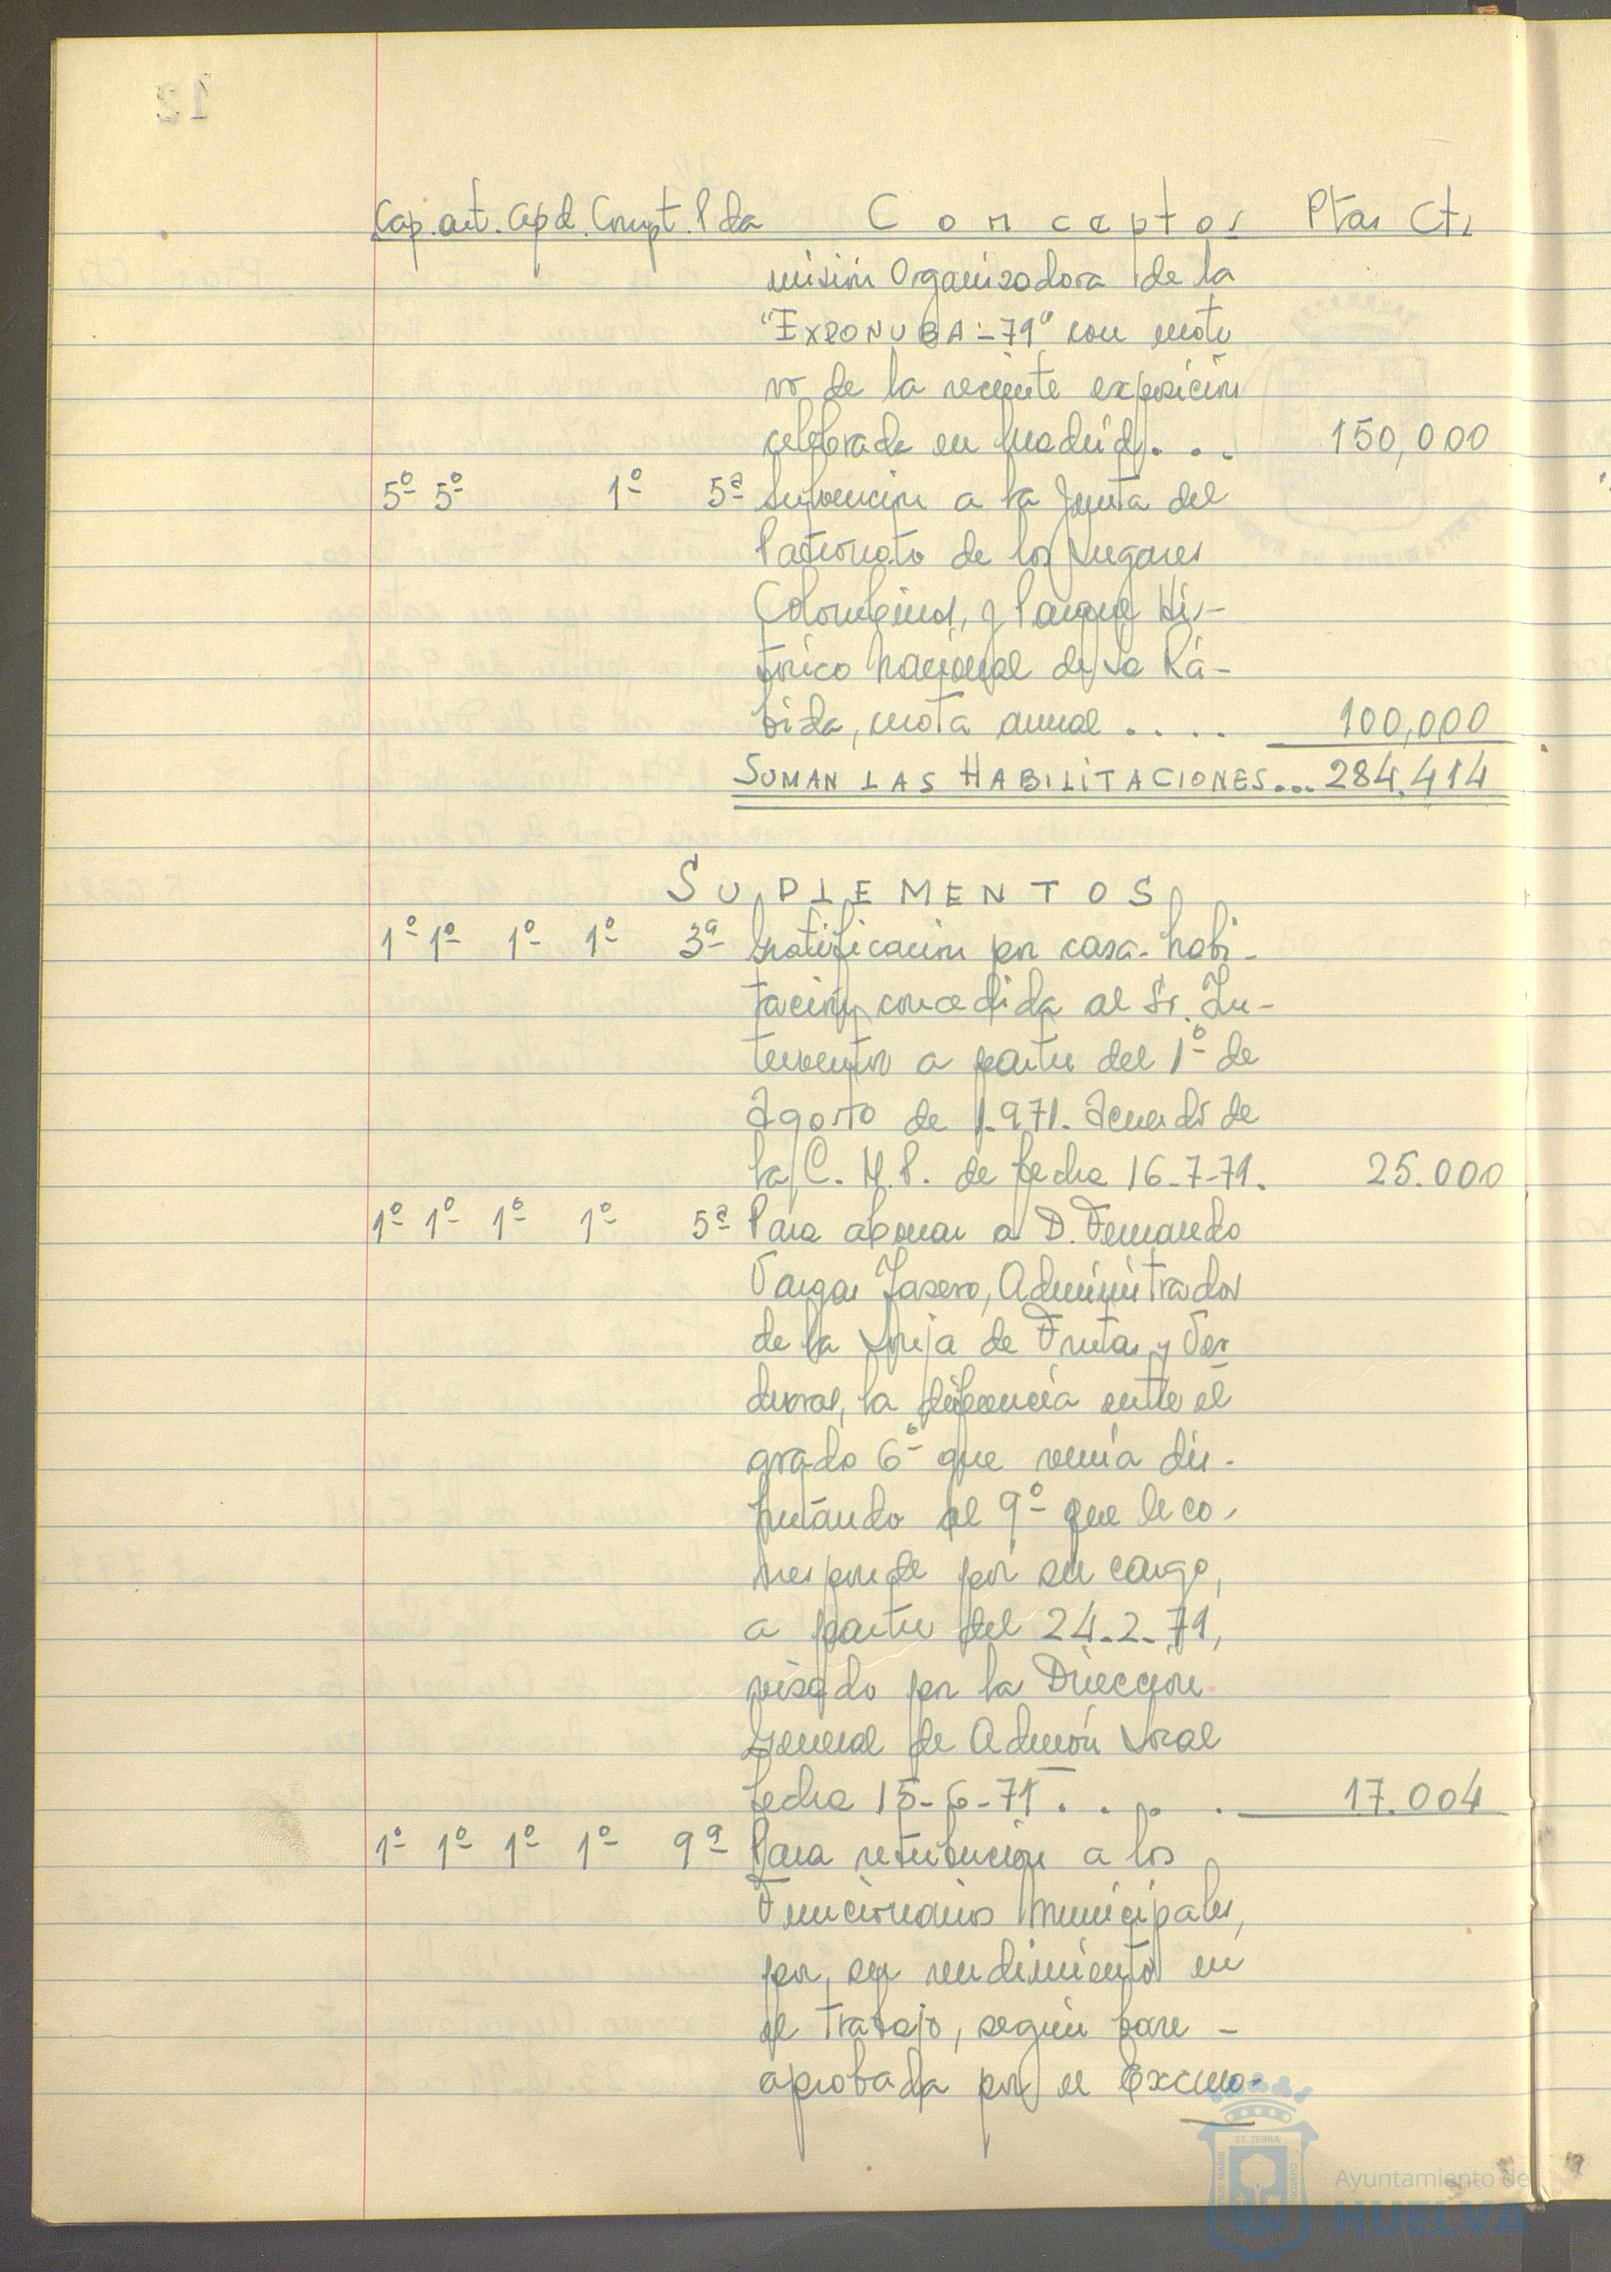 Cap. art. Apd. Cnupt. Pda Conceptos Ptas Cts
misión Organizadora de la
"EXPONUBA-71" con moti
vo de la reciente exposición
celebrada en Madrid. . . 150,000
5º 5º 1º 5ª Subvención a la Junta del
Patronato de los Lugares
Colombinos, y Parque His-
tórico Nacional de La Rá-
bida, cuota anual . . . . 100,000
SUMAN LAS HABILITACIONES... 284.414
SUPLEMENTOS
1º 1º 1º 1º 3ª Gratificación por casa-habi-
tación concedida al Sr. In-
terventor a partir del 1º de
Agosto de 1.971. Acuerdo de
la C. M. P. de fecha 16-7-71. 25.000
1º 1º 1º 1º 5ª Para abonar a D. Fernando
Vargas Lasero, Administrador
de la Lonja de Frutas y Ver
duras, la diferencia entre el
grado 6º que venía dis-
frutando al 9º que le co-
rresponde por su cargo,
a partir del 24-2-71,
visado por la Dirección
General de Admón Local
fecha 15-6-71. . . . 17.004
1º 1º 1º 1º 9ª Para retribución a los
Funcionarios Municipales,
por su rendimiento en
el trabajo, según base -
aprobada por el Excmo-
ET TERRA
Ayuntamiento de
HUELVA